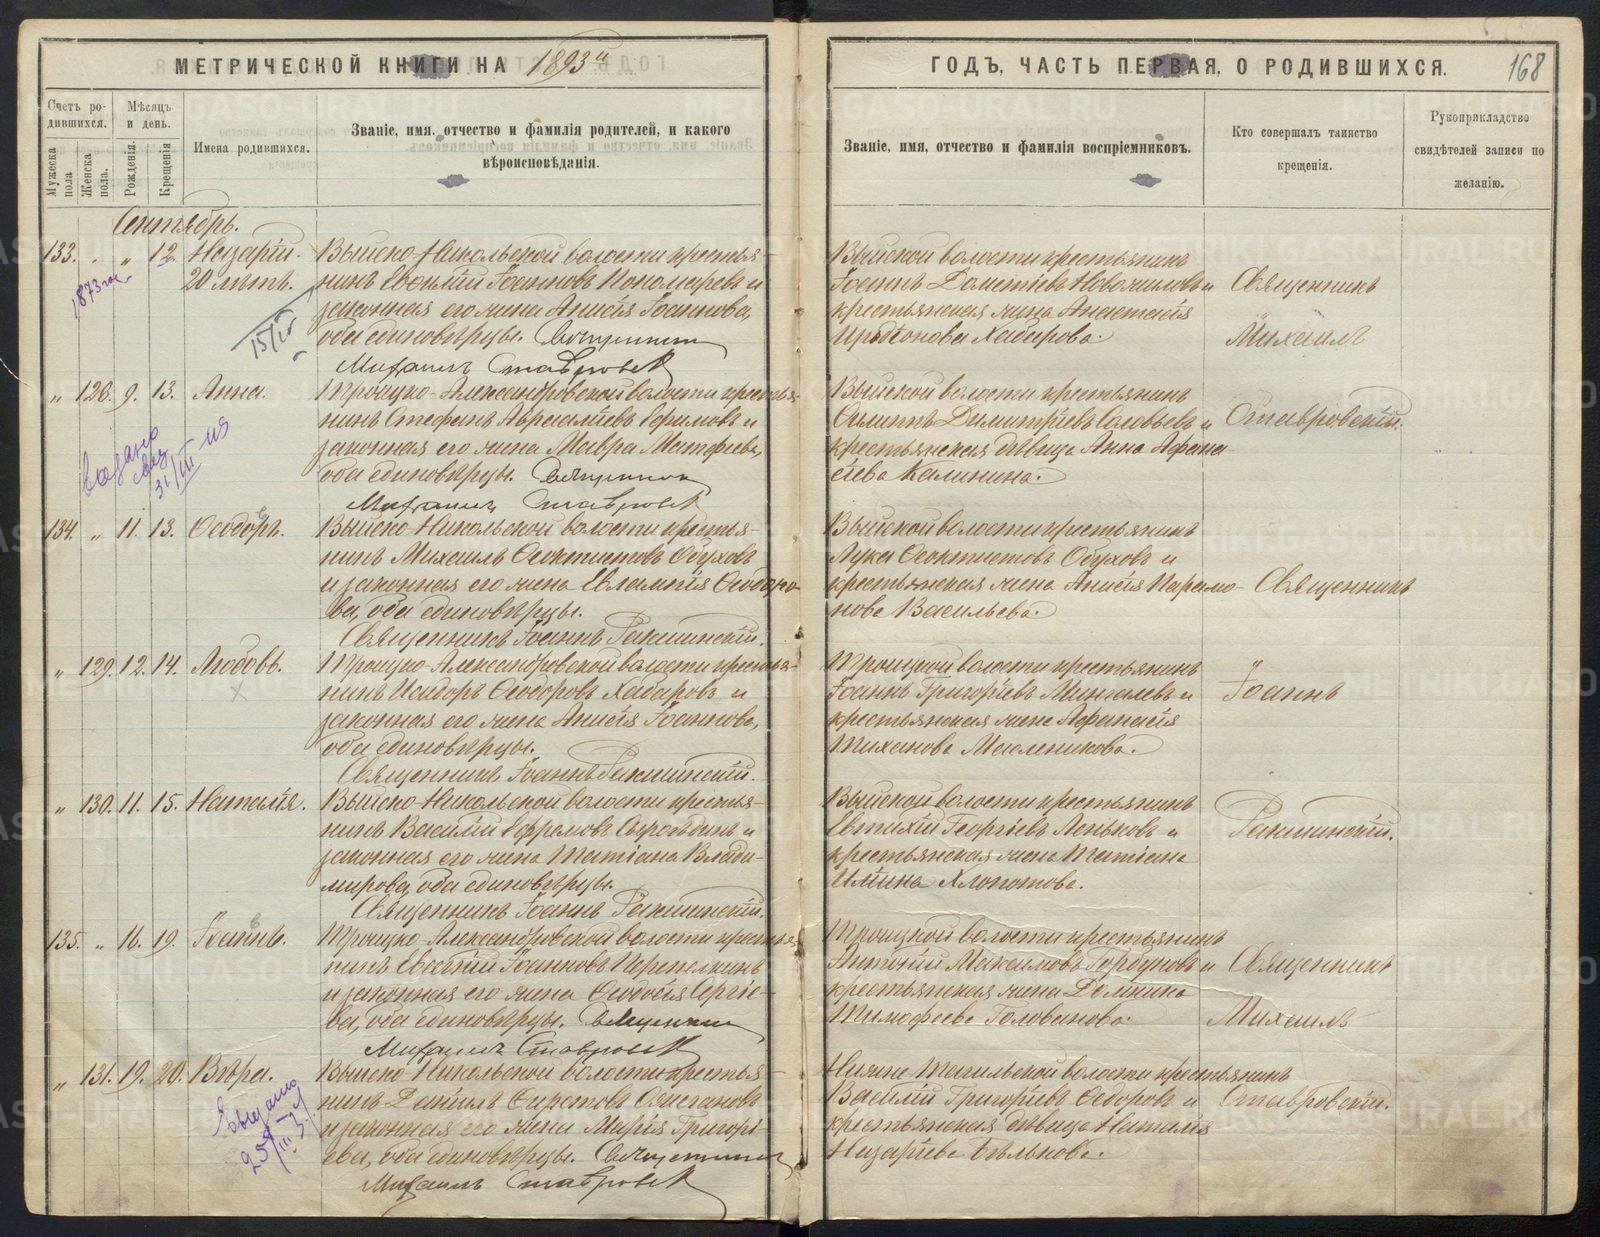 МЕТРИЧЕСКОЙ КНИГИ НА 1893й
ГОДЪ, ЧАСТЬ ПЕРВАЯ, О РОДИВШИХСЯ.
168
Счетъ ро-
дившихся.
Мѣсяцъ
и день.
Мужеска
пола
Женска
пола.
Рожденія.
Крещенія
Имена родившихся.
Званіе, имя, отчество и фамилія родителей, и какого
вѣроисповѣданія.
Званіе, имя, отчество и фамилія воспріемниковъ.
Кто совершалъ таинство
крещенія.
Рукоприкладство
свидѣтелей записи по
желанію.
Сентябрь.
133. „ „ 12. Назарій.
20 лѣтъ.
1873
15/IV
Выйско-Никольской волости крестья-
нинъ Евѳимій Іоанновъ Пономаревъ и
законная его жена Анисія Іоаннова,
оба единовѣрцы. Священникъ
Михаилъ Ставровск
Выйской волости крестьянинъ
Іоаннъ Дометіевъ Новожиловъ и
крестьянская жена Анастасія
Хабарова.
Священникъ
Михаилъ
„ 128. 9. 13. Анна.
31/III
Троицко-Александровской волости крестья-
нинъ Стефанъ Авраамі́евъ Ефимовъ и
законная его жена Мавра Матфеева,
оба единовѣрцы. Священник
Михаилъ Ставровск
Выйской волости крестьянинъ
Димитріевъ Соловьевъ и
крестьянская дѣвица Анна Афана-
сіева Калинина.
Ставровскій.
134. „ 11. 13. Ѳеодоръ.
Выйско-Никольской волости крестья-
нинъ Михаилъ Ѳеоктистовъ Обуховъ
и законная его жена Евлампія Ѳеодоро-
ва, оба единовѣрцы.
Священникъ Іоаннъ
Выйской волости крестьянинъ
Лука Ѳеоктистовъ Обуховъ и
крестьянская жена Анисія Парамо-
нова Васильева.
Священникъ
„ 129. 12. 14. Любовь.
Троицко-Александровской волости крестья-
нинъ Исидоръ Ѳеодоровъ Хабаровъ и
законная его жена Анисія Іоаннова,
оба единовѣрцы.
Священникъ Іоаннъ
Троицкой волости крестьянинъ
Іоаннъ Григоріевъ и
крестьянская жена Афанасія
Тиханова Масленикова.
Іоаннъ
„ 130. 11. 15. Наталія.
Выйско-Никольской волости крестья-
нинъ Василій Ефремовъ Сыроѣдинъ и
законная его жена Татіана Влади-
мирова, оба единовѣрцы.
Священникъ Іоаннъ
Выйской волости крестьянинъ
Евтихій Георгіевъ Леньковъ и
крестьянская жена Татіана
Ильина Хлопотова.
135. „ 16. 19. Іоаннъ.
Троицко-Александровской волости крестья-
нинъ Евсевій Іоанновъ Перепелкинъ
и законная его жена Ѳеодосія Сергіе-
ва, оба единовѣрцы. Священник
Михаилъ Ставровск
Троицкой волости крестьянинъ
Антоній Максимовъ Горбуновъ и
крестьянская жена Домнина
Тимофеева Голованова.
Священникъ
Михаилъ
„ 131. 19. 20. Вѣра.
25/III
Выйско-Никольской волости крестья-
нинъ Даніилъ Ѳирсовъ
и законная его жена Марія Григорі-
ева, оба единовѣрцы. Священник
Михаилъ Ставровск
Нижне Тагильской волости крестьянинъ
Василій Григоріевъ Ѳедоровъ и
крестьянская дѣвица Наталія
Назаріева Бѣлькова.
Ставровскій.
METRIKI.GASO-URAL.RU